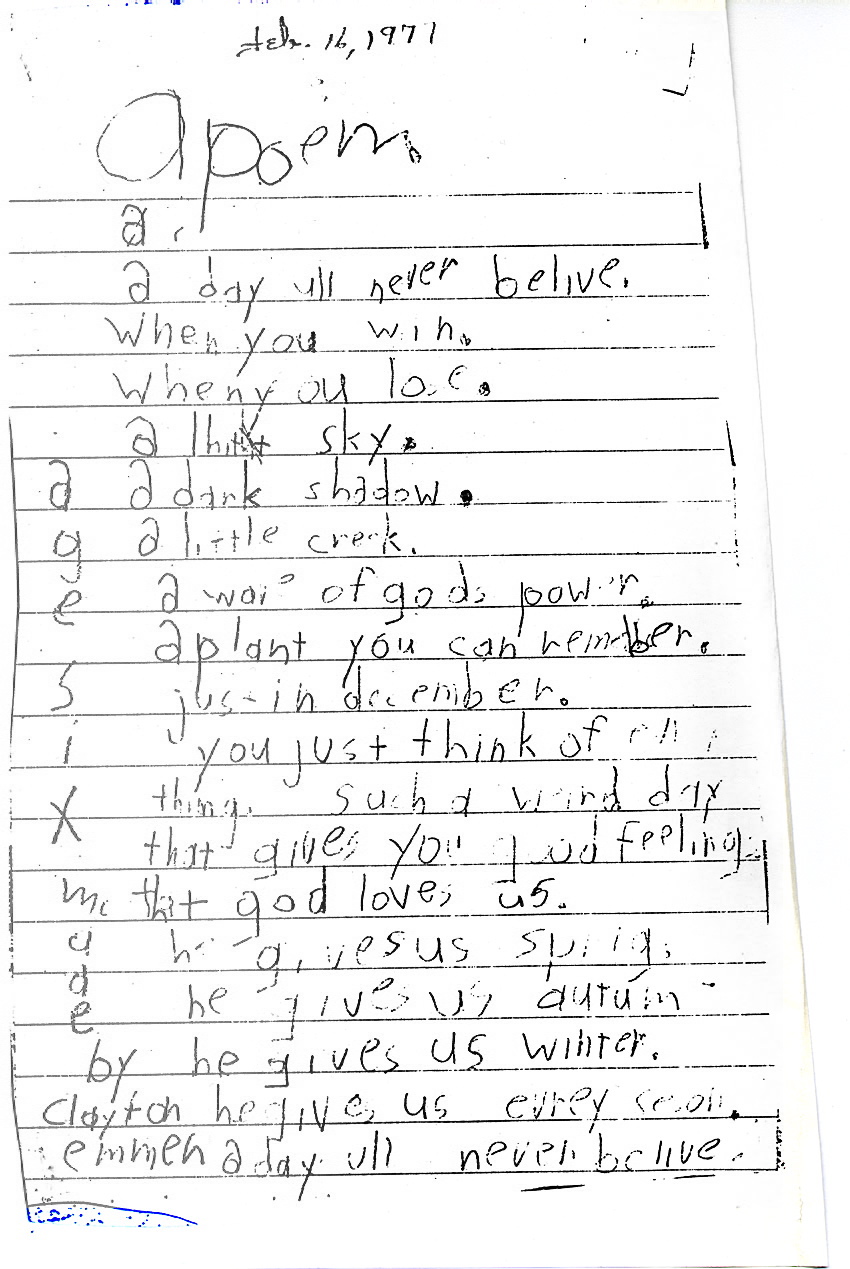 Feb. 16, 1977
a poem.
a.
a day ull never belive.
when you win.
when you lose.
a sky.
a dark shadow.
a little creek.
a of gods power.
a plant you can remember.
just in december.
you just think of
thing. such a day
that gives you good feeling
that god loves us.
he gives us sprig.
he gives us autum
he gives us winter.
he gives us evrey
a day ull never belive.
age
six
made
by
clayton
emmen